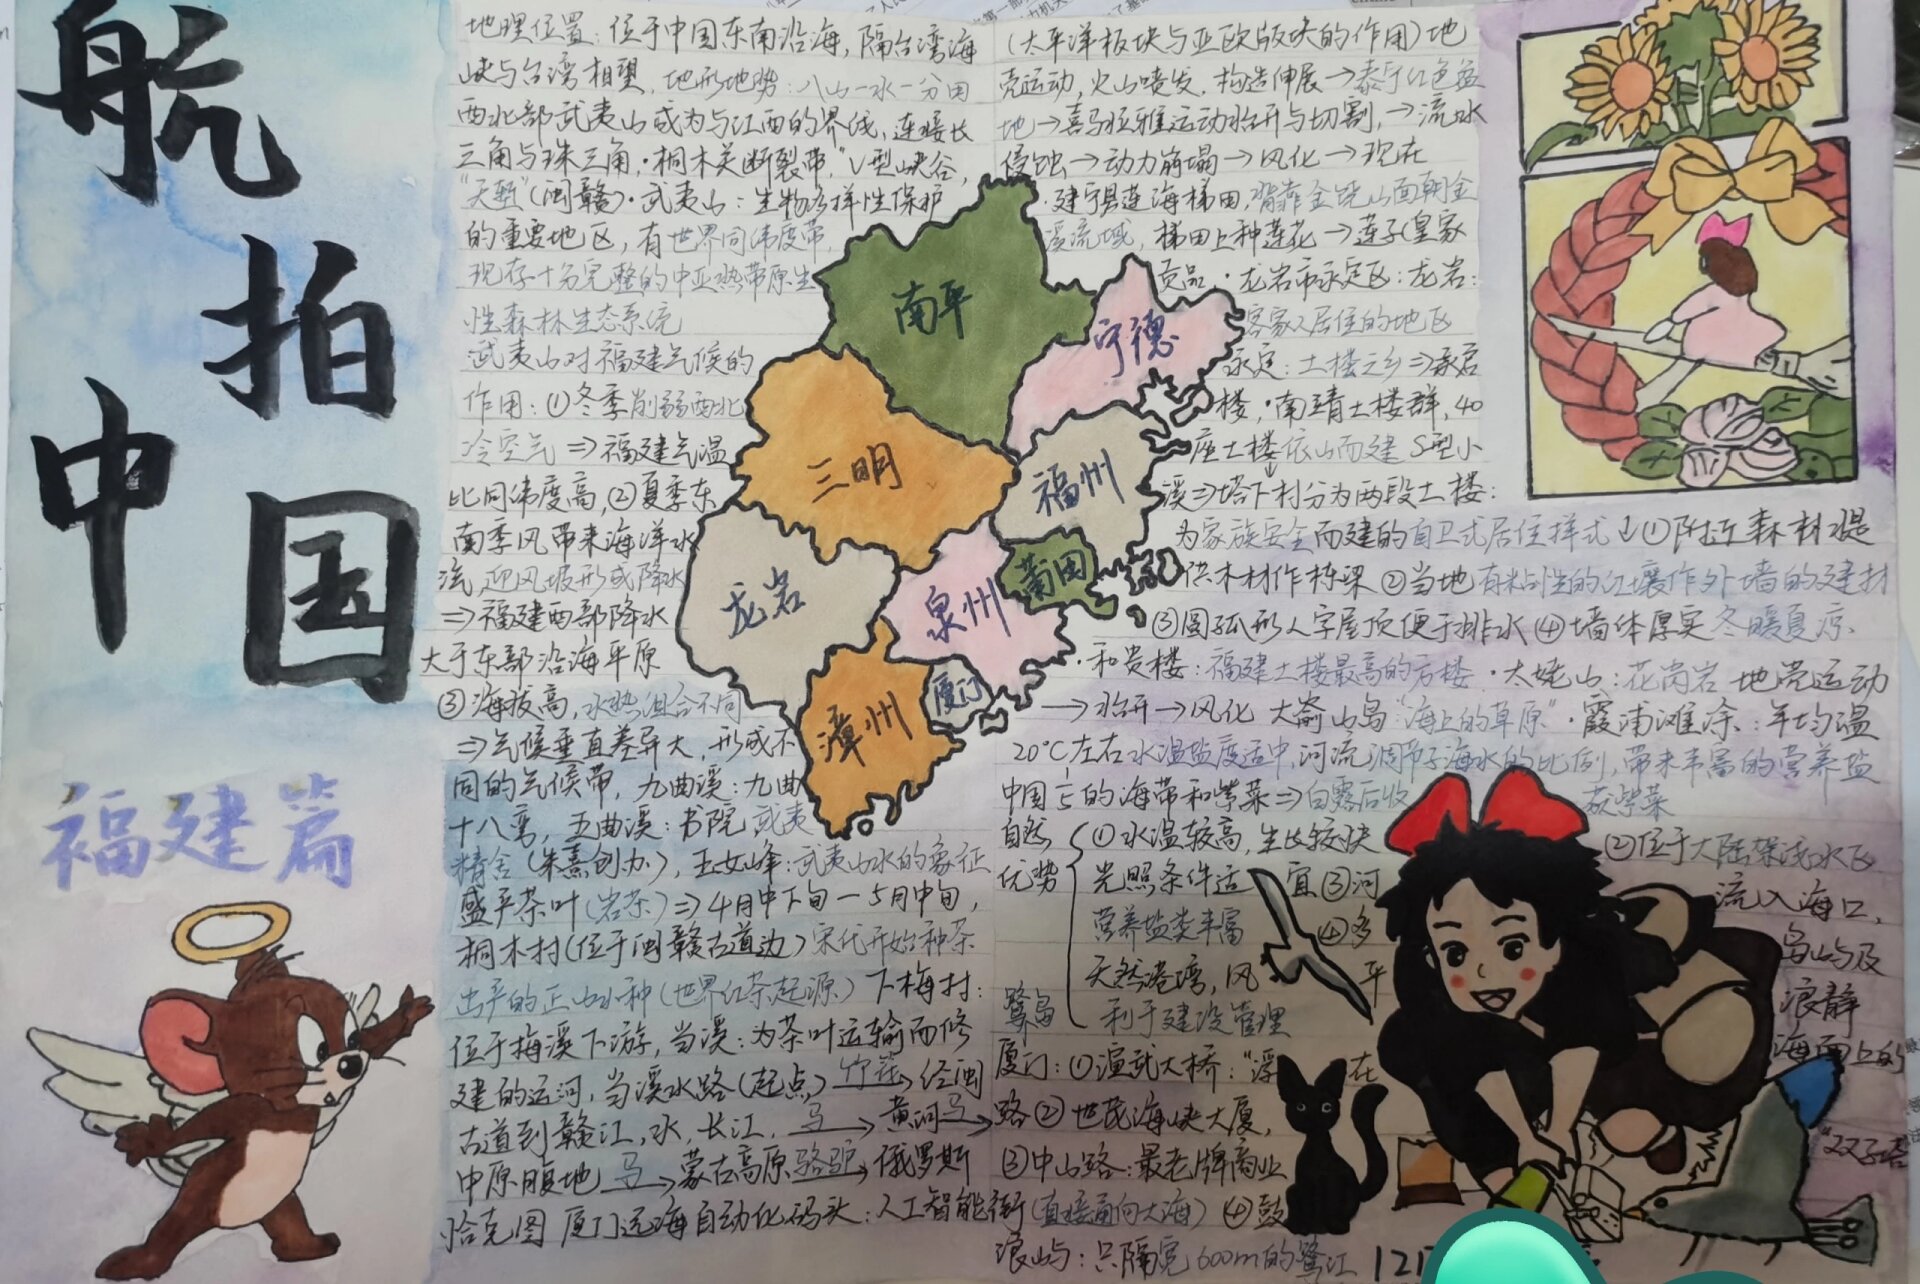 航拍中国
福建篇
地理位置：位于中国东南沿海，隔台湾海
峡与台湾相望，地形地势：八山一水一分田
西北部武夷山成为与江西的界线，连接长
三角与珠三角·桐木关断裂带，"V型峡谷，
"天堑"（闽赣）·武夷山：生物多样性保护
的重要地区，有世界同纬度带，
现存十分完整的中亚热带原生
性森林生态系统
武夷山对福建气候的
作用：①冬季削弱西北
冷空气⇒福建气温
比同纬度高，②夏季东
南季风带来海洋水
流，迎风坡形成降水
⇒福建西部降水
大于东部沿海平原
③海拔高，水热组合不同
⇒气候垂直差异大，形成不
同的气候带，九曲溪：九曲
十八弯，五曲溪：书院武夷
精舍（朱熹创办），玉女峰：武夷山水的象征
盛产茶叶（岩茶）⇒4月中下旬—5月中旬，
桐木村（位于闽赣古道边）宋代开始种茶
出产的正山小种（世界红茶起源）下梅村：
位于梅溪下游，当溪：为茶叶运输而修
建的运河，当溪水路（起点）竹筏→经闽
古道到赣江，水，长江，马→黄河马→
中原腹地马→蒙古高原骆驼→俄罗斯
恰克图 厦门远海自动化码头：人工智能
（太平洋板块与亚欧版块的作用）地
壳运动，火山喷发，构造伸展→泰宁红色盆
地→喜马拉雅运动抬升与切割，→流水
侵蚀→动力崩塌→风化→现在
·建宁县莲海梯田，背靠金铙山面朝金
溪流域，梯田上种莲花→莲子（皇家
贡品·龙岩市永定区：龙岩：
客家人居住的地区
永定：土楼之乡⇒承启
楼，·南靖土楼群，40
座土楼依山而建S型小
溪⇒塔下村分为两段土楼：
为家族安全而建的自卫式居住样式↓①附近森林提
供木材作栋梁②当地有粘性的红壤作外墙的建材
③圆弧形人字屋顶便于排水④墙体厚实冬暖夏凉、
·和贵楼：福建土楼最高的方楼·太姥山：花岗岩地壳运动
→抬升→风化 大嵛山岛"海上的草原"·霞浦滩涂：年均温
20℃左右水温盐度适中，河流调节了海水的比例，带来丰富的营养盐
中国的海带和紫菜⇒白露后收
紫菜
自然
优势
①水温较高，生长较快
光照条件适宜
②位于大陆架浅水区
③河流入海口，
营养盐类丰富
④多岛屿及
天然港湾，风平浪静
利于建设管理
鹭岛
厦门：①演武大桥："浮在海面上的
路②世茂海峡大厦，"双子塔
③中山路：最老牌商业
街（直接通向大海）④鼓
浪屿：只隔宽600m的鹭江
南平
宁德
三明
福州
龙岩
泉州
莆田
漳州
厦门